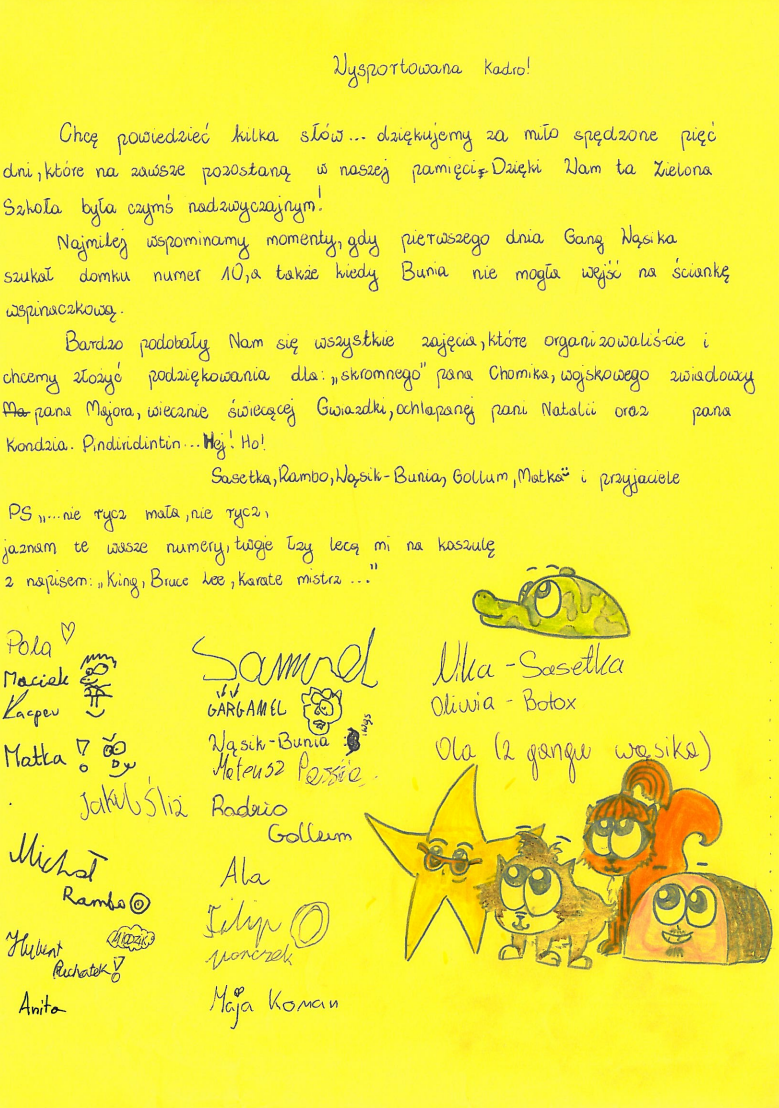 Wysportowana Kadro!
Chcę powiedzieć kilka słów... dziękujemy za miło spędzone pięć
dni, które na zawsze pozostaną w naszej pamięci. Dzięki Wam ta Zielona
Szkoła była czymś nadzwyczajnym!
Najmilej wspominamy momenty, gdy pierwszego dnia Gang Wąsika
szukał domku numer 10, a także kiedy Bunia nie mogła wejść na ściankę
wspinaczkową.
Bardzo podobały Nam się wszystkie zajęcia, które organizowaliście i
chcemy złożyć podziękowania dla: „skromnego" pana Chomika, wojskowego zwiadowcy
Ma pana Majora, wiecznie świecącej Gwiazdki, ochlapanej pani Natalii oraz pana
Kondzia. Pindiridintin... Hej! Ho!
Sasetka, Rambo, Wąsik-Bunia, Gollum, „Matka" i przyjaciele
PS „...nie rycz mała, nie rycz,
jaznam te wasze numery, twoje łzy lecą mi na koszulę
z napisem: „King, Bruce Lee, Karate mistrz ..."
Pola
Maciek
Kacper
Matka !
Jakub Śliż
Michał
Rambo
Hubert
Puchatek!
Anita
Samuel
GARGAMEL
Wąsik-Bunia
wąs
Mateusz
Radzio
Gollum
Ala
Filip
Maja Koman
Nika - Sasetka
Oliwia - Botox
Ola (z gangu wąsika)